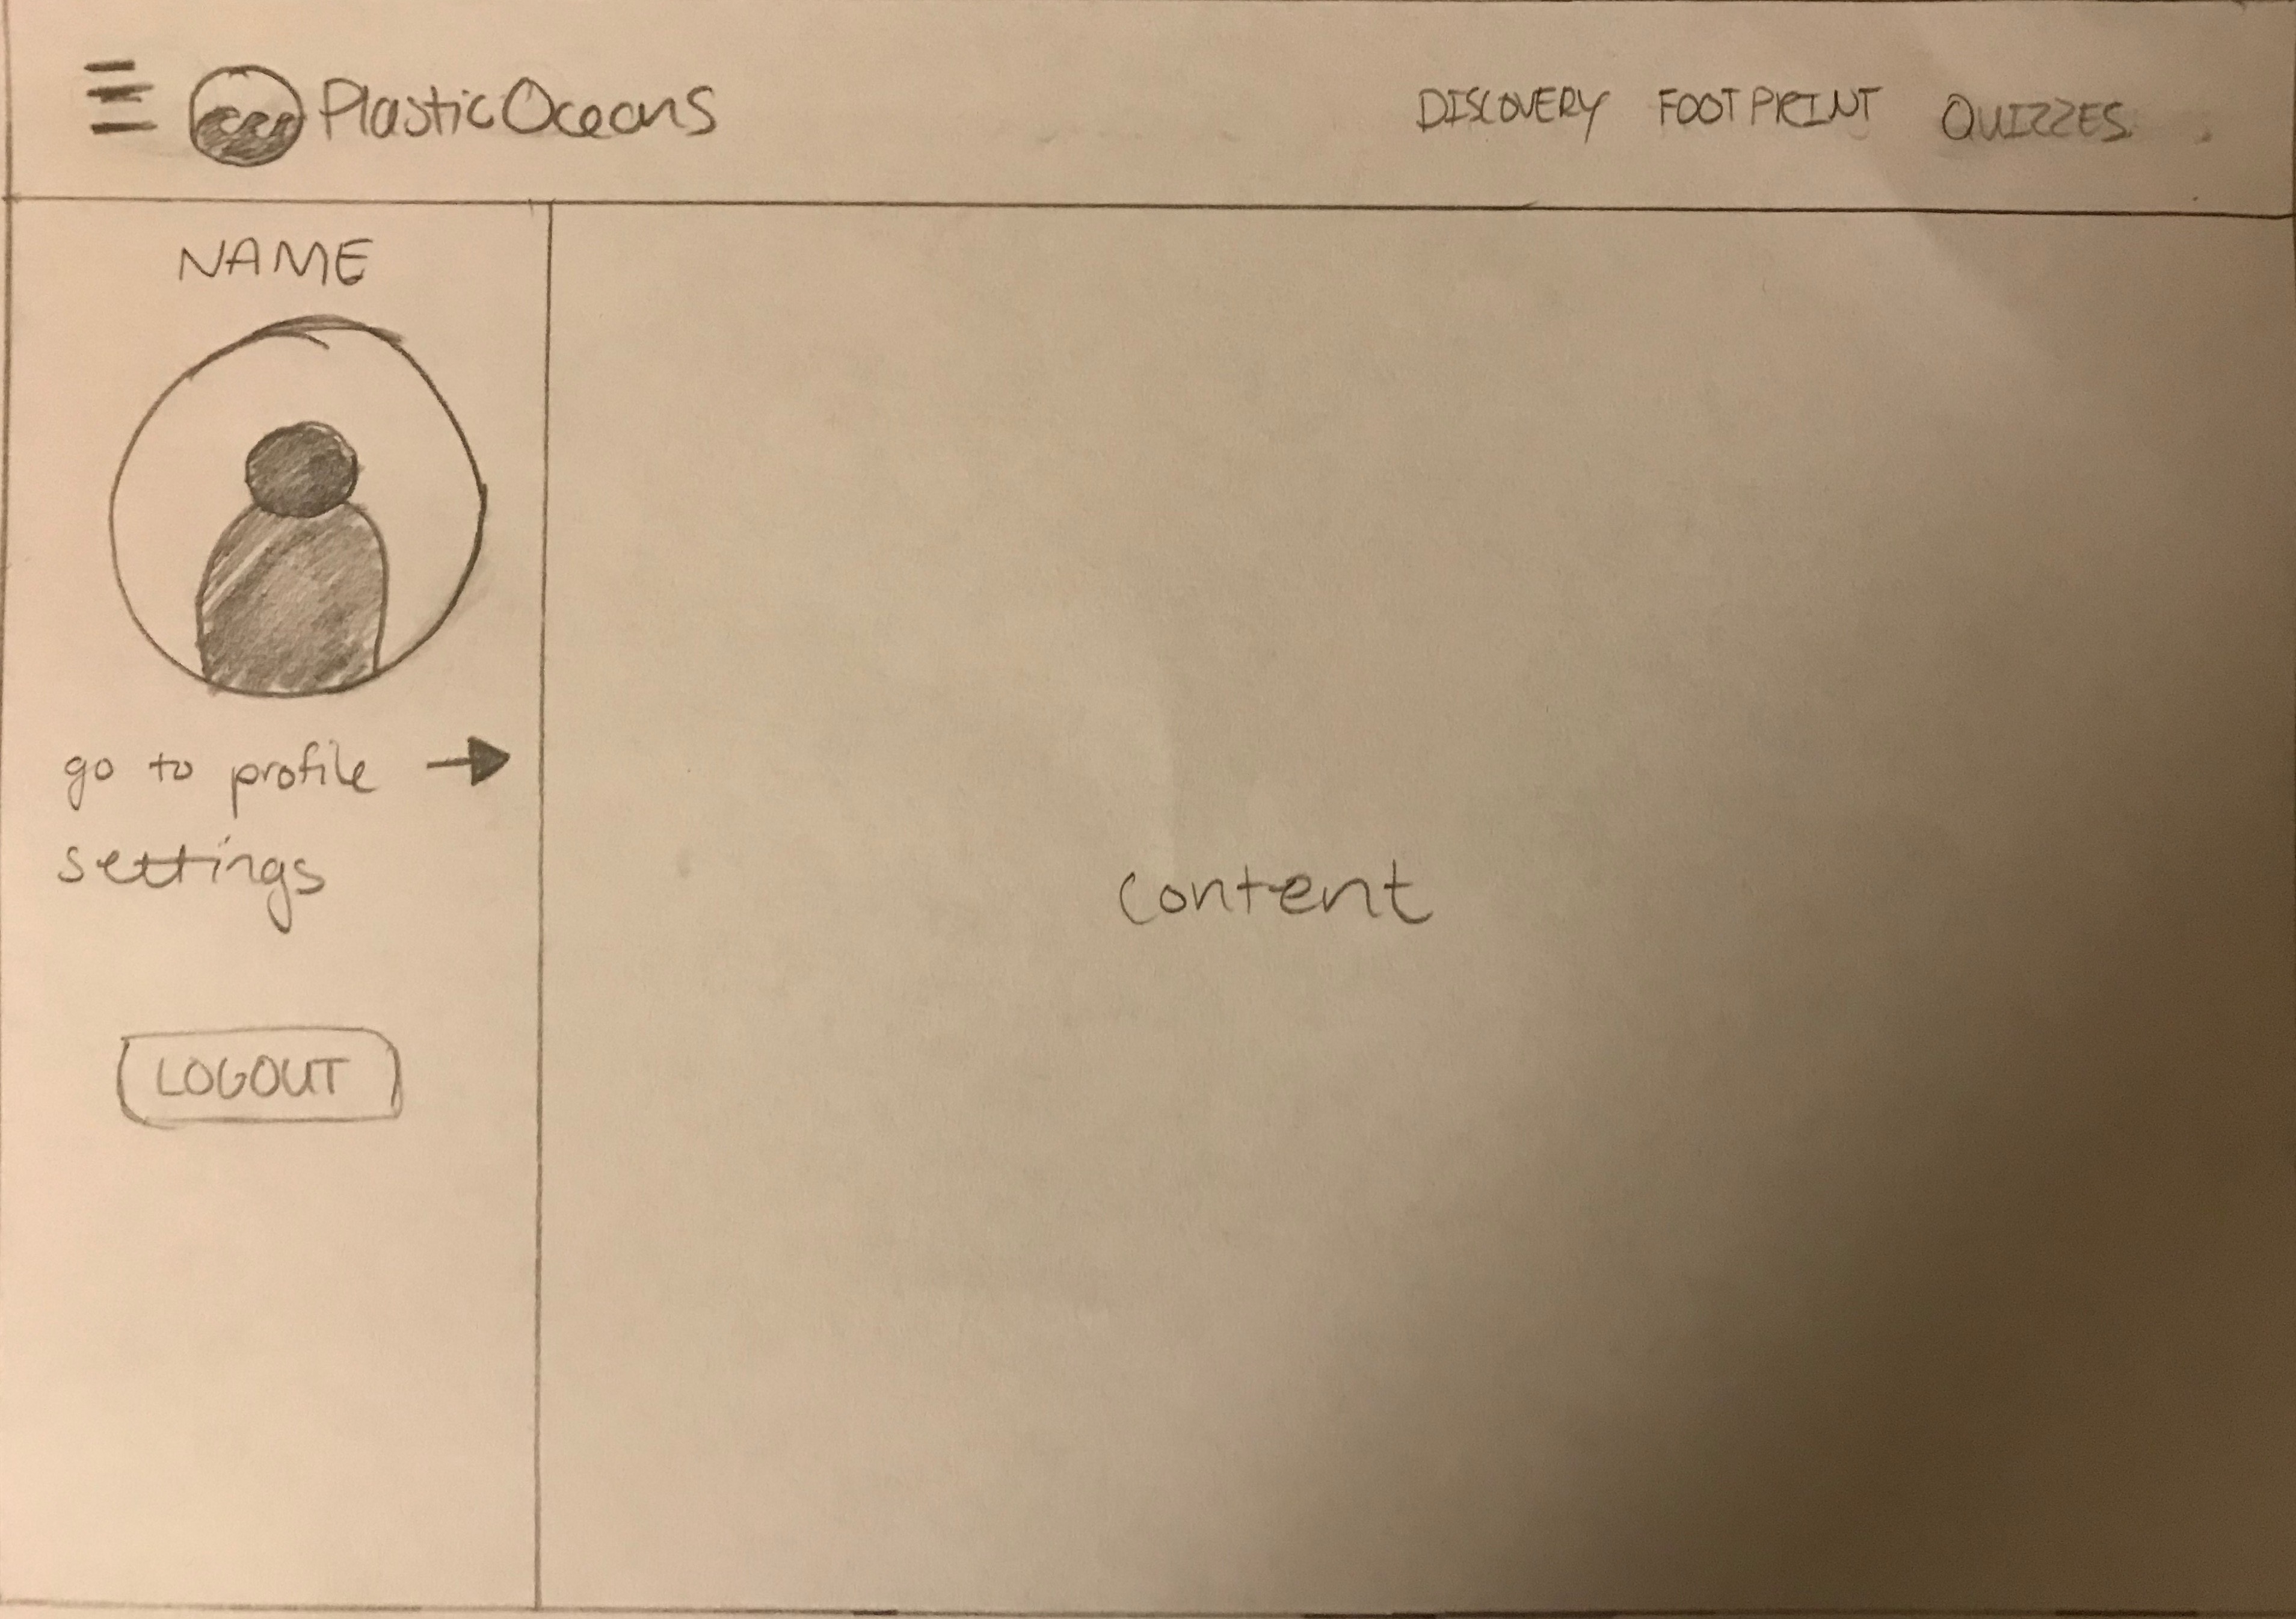 PlasticOceans DISCOVERY FOOTPRINT QUIZZES
NAME
go to profile
settings
content
LOGOUT